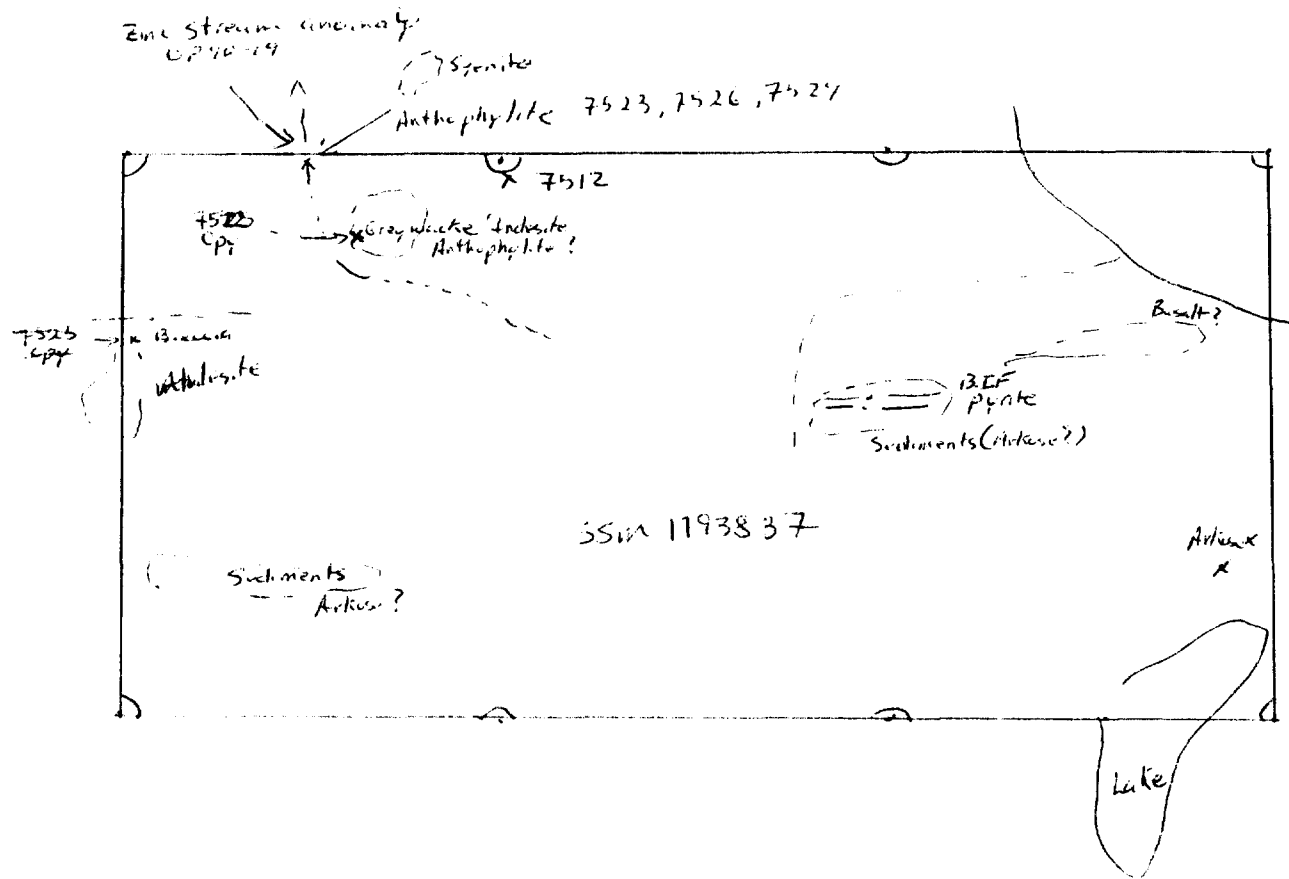 Zinc Stream anomaly
Syenite
Anthophylite 7523, 7526, 7527
7512
7522
Cpy
Greywacke Andesite
Anthophylite?
7525
Cpy
Andesite
Basalt?
BIF
Pyrite
Sediments (Arkose?)
SSM 1193837
Arkose x
x
Sediments
Arkose?
Lake